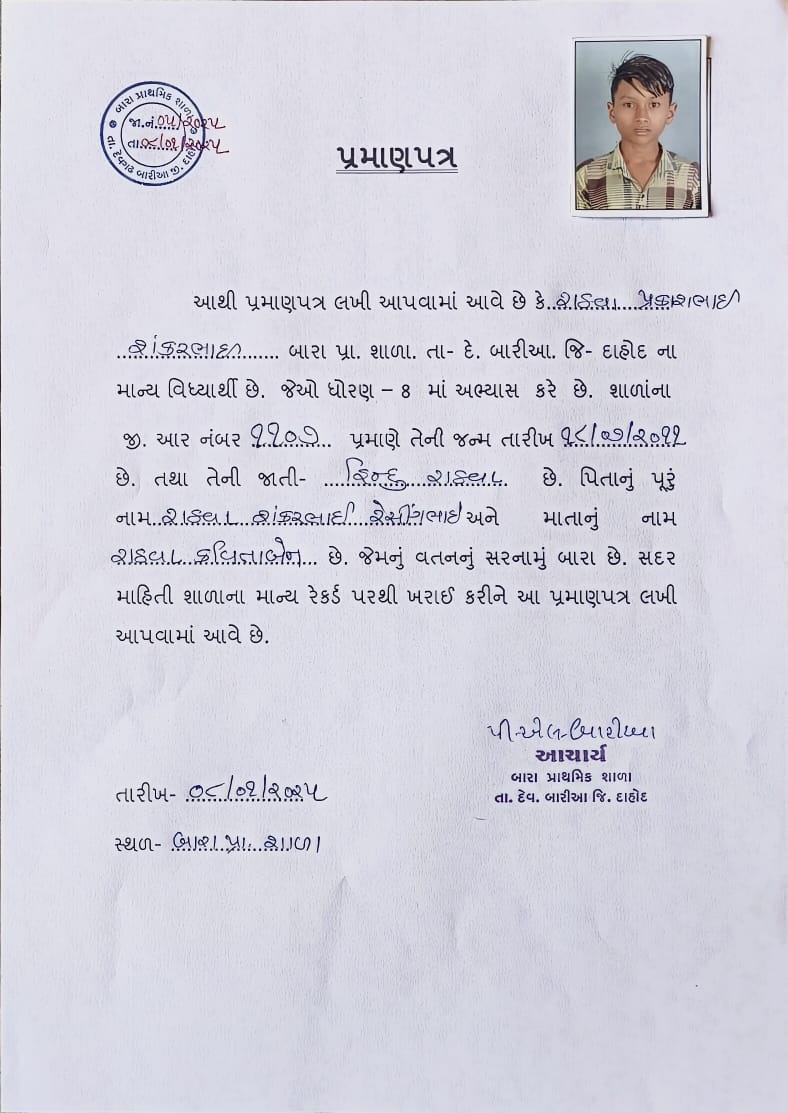 બારા પ્રાથમિક શાળા
જા.નં. ૦૫/૨૦૨૫
તા. ૦૮/૦૧/૨૦૨૫
તા. દેવગઢ બારીઆ જી. દાહોદ
પ્રમાણપત્ર
આથી પ્રમાણપત્ર લખી આપવામાં આવે છે કે રાઠવા પ્રકાશભાઈ
શંકરભાઈ બારા પ્રા. શાળા. તા- દે. બારીઆ. જિ- દાહોદ ના
માન્ય વિધ્યાર્થી છે. જેઓ ધોરણ – 8 માં અભ્યાસ કરે છે. શાળાંના
જી. આર નંબર ૧૧૦૭ પ્રમાણે તેની જન્મ તારીખ ૧૮/૦૭/૨૦૧૧
છે. તથા તેની જાતી- હિન્દુ રાઠવા છે. પિતાનું પૂરું
નામ રાઠવા શંકરભાઈ રેસીંગભાઈ અને માતાનું નામ
રાઠવા કવિતાબેન છે. જેમનું વતનનું સરનામું બારા છે. સદર
માહિતી શાળાના માન્ય રેકર્ડ પરથી ખરાઈ કરીને આ પ્રમાણપત્ર લખી
આપવામાં આવે છે.
પી.એલ.બારીઆ
આચાર્ય
બારા પ્રાથમિક શાળા
તા. દેવ. બારીઆ જિ. દાહોદ
તારીખ- ૦૮/૦૧/૨૦૨૫
સ્થળ- બારા પ્રા. શાળા